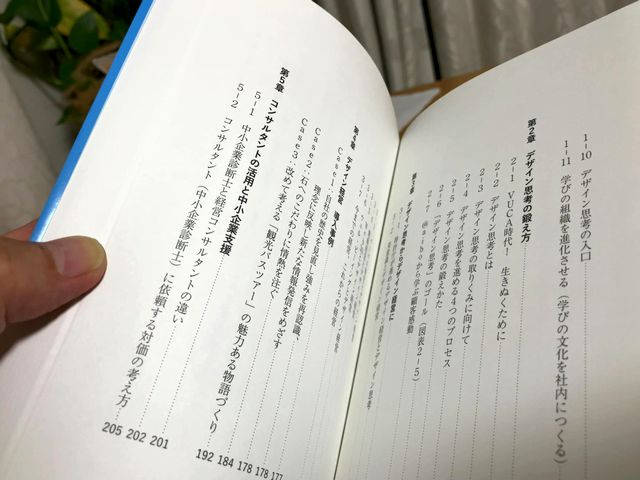 1-10 デザイン思考の入口
1-11 学びの組織を進化させる(学びの文化を社内につくる)
第2章 デザイン思考の鍛え方
2-1 VUCA時代! 生きぬくために
2-2 デザイン思考とは
2-3 デザイン思考の取りくみに向けて
2-4 デザイン思考を進める4つのプロセス
2-5 デザイン思考の鍛えかた
2-6 「デザイン思考」のゴール(図表2-5)
2-7 から学ぶ顧客感動
第3章 デザイン思考からデザイン経営に
デザイン経営 導入事例
Case1:自社の歴史を見直し強みを再認識、
理念に反映し新たな情報発信をめざす
Case2:石へのこだわりに情熱を注ぐ 178
Case3:改めて考える「観光バスツアー」の魅力ある物語づくり 184
192
第5章 コンサルタントの活用と中小企業支援
5-1 中小企業診断士と経営コンサルタントの違い 201
5-2 コンサルタント(中小企業診断士)に依頼する対価の考え方 202
205